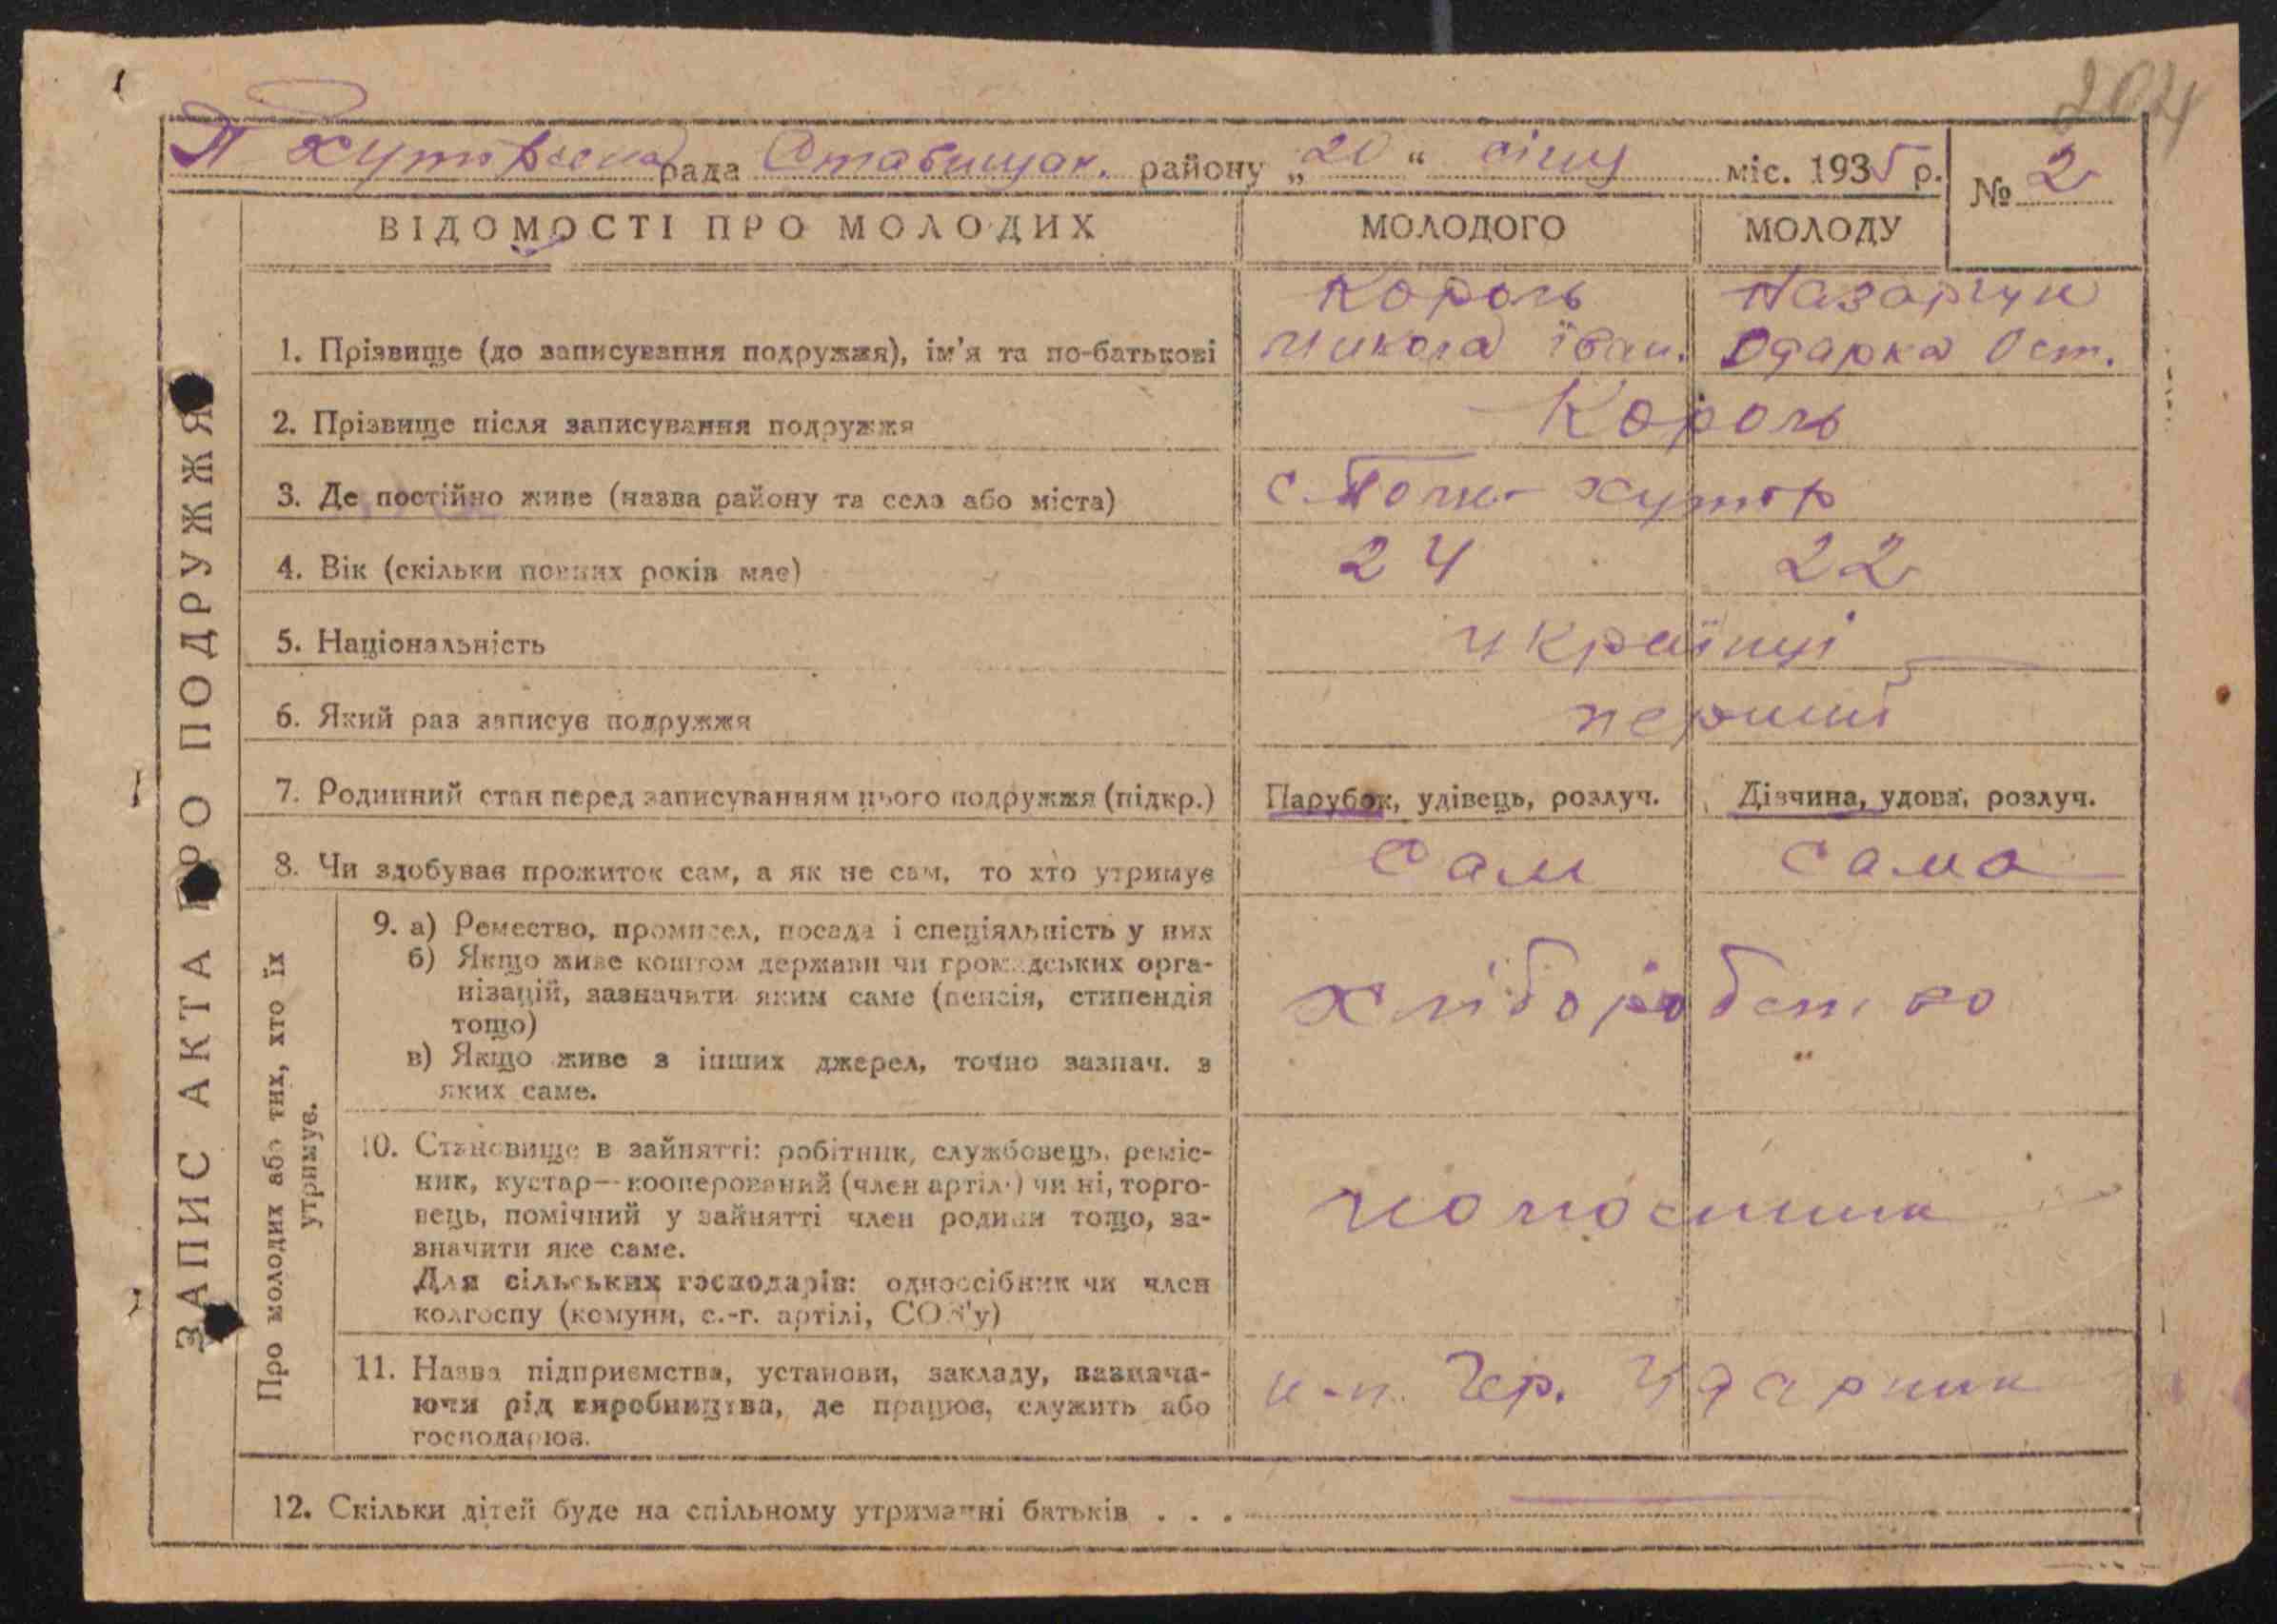 204
П Хутірська рада Ставищан. району „20“ січня міс. 1935 р. № 2
ВІДОМОСТІ ПРО МОЛОДИХ МОЛОДОГО МОЛОДУ
Король Назарчук
1. Прізвище (до записування подружжя), ім'я та по-батькові Микола Іван. Одарка Ост.
2. Прізвище після записування подружжя Король
3. Де постійно живе (назва району та села або міста) с. хутір
4. Вік (скільки повних років має) 24 22
5. Національність українці
6. Який раз записує подружжя перший
7. Родинний стан перед записуванням цього подружжя (підкр.) Парубок, удівець, розлуч. Дівчина, удова, розлуч.
8. Чи здобуває прожиток сам, а як не сам, то хто утримує Сам Сама
ЗАПИС АКТА ПРО ПОДРУЖЖЯ
Про молодих або тих, хто їх
утримує.
9. а) Ремество, промисел, посада і спеціяльність у них
б) Якщо живе коштом держави чи громадських орга-
нізацій, зазначити яким саме (пенсія, стипендія
тощо)
в) Якщо живе з інших джерел, точно зазнач. з
яких саме.
хліборобство
10. Становище в зайнятті: робітник, службовець, реміс-
ник, кустар—кооперований (член артіл.) чи ні, торго-
вець, помічний у зайнятті член родини тощо, за-
значити яке саме.
Для сільських господарів: одноосібник чи член
колгоспу (комуни, с.-г. артілі, СОЗ'у)
11. Назва підприємства, установи, закладу, зазнача-
ючи рід виробництва, де працює, служить або
господарює.
Чер. Ударник
12. Скільки дітей буде на спільному утриманні батьків . . .